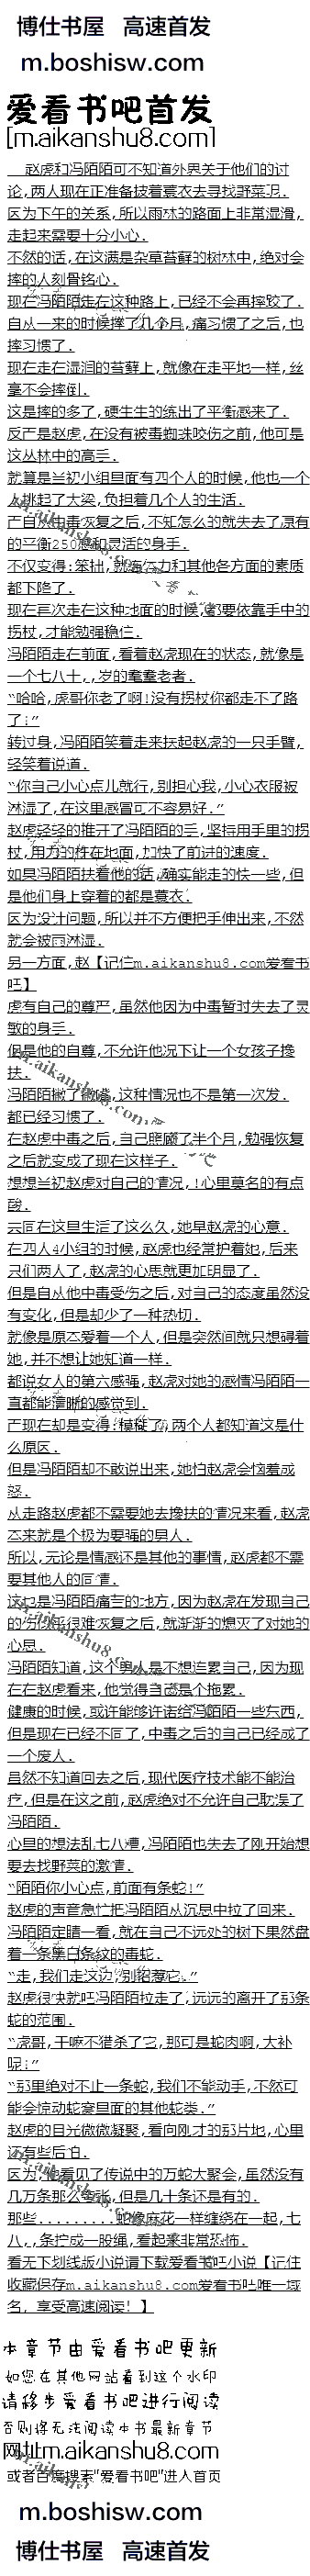 博仕书屋 高速首发
m.boshisw.com
爱看书吧首发
[m.aikanshu8.com]
赵虎和冯陌陌可不知道外界关于他们的讨
论,两人现在正准备披着蓑衣去寻找野菜呢.
因为下午的关系,所以雨林的路面上非常湿滑,
走起来需要十分小心.
不然的话,在这满是杂草苔藓的树林中,绝对会
摔的人刻骨铭心.
现在冯陌陌走在这种路上,已经不会再摔跤了.
自从一来的时候摔了几个月,痛习惯了之后,也
摔习惯了.
现在走在湿润的苔藓上,就像在走平地一样,丝
毫不会摔倒.
这是摔的多了,硬生生的练出了平衡感来了.
反而是赵虎,在没有被毒蜘蛛咬伤之前,他可是
这丛林中的高手.
就算是当初小组里面有四个人的时候,他也一个
人挑起了大梁,负担着几个人的生活.
而自从中毒恢复之后,不知怎么的就失去了原有
的平衡250感和灵活的身手.
不仅变得:笨拙,就连体力和其他各方面的素质
都下降了.
现在再次走在这种地面的时候,都要依靠手中的
拐杖,才能勉强稳住.
冯陌陌走在前面,看着赵虎现在的状态,就像是
一个七八十,,岁的耄耋老者.
“哈哈,虎哥你老了啊!没有拐杖你都走不了路
了:”
转过身,冯陌陌笑着走来扶起赵虎的一只手臂,
轻笑着说道.
“你自己小心点儿就行,别担心我,小心衣服被
淋湿了,在这里感冒可不容易好.”
赵虎轻轻的推开了冯陌陌的手,坚持用手里的拐
杖,用力的柞在地面,加快了前进的速度.
如果冯陌陌扶着他的话,确实能走的快一些,但
是他们身上穿着的都是蓑衣.
因为设计问题,所以并不方便把手伸出来,不然
就会被雨淋湿.
另一方面,赵【记住m.aikanshu8.com爱看书
吧】
虎有自己的尊严,虽然他因为中毒暂时失去了灵
敏的身手.
但是他的自尊,不允许他况下让一个女孩子搀
扶.
冯陌陌撇了撇嘴,这种情况也不是第一次发.
都已经习惯了.
在赵虎中毒之后,自己照顾了半个月,勉强恢复
之后就变成了现在这样子.
想想当初赵虎对自己的情况,!心里莫名的有点
酸.
共同在这里生活了这么久,她早赵虎的心意.
在四人4小组的时候,赵虎也经常护着她,后来
只们两人了,赵虎的心思就更加明显了.
但是自从他中毒受伤之后,对自己的态度虽然没
有变化,但是却少了一种热切.
就像是原本爱着一个人,但是突然间就只想碍着
她,并不想让她知道一样.
都说女人的第六感强,赵虎对她的感情冯陌陌一
直都能清晰的感觉到.
而现在却是变得:模糊了,两个人都知道这是什
么原因.
但是冯陌陌却不敢说出来,她怕赵虎会恼羞成
怒.
从走路赵虎都不需要她去搀扶的情况来看,赵虎
本来就是个极为要强的男人.
所以,无论是情感还是其他的事情,赵虎都不需
要其他人的同情.
这也是冯陌陌痛苦的地方,因为赵虎在发现自己
的伤似乎很难恢复之后,就渐渐的熄灭了对她的
心思.
冯陌陌知道,这个男人是不想连累自己,因为现
在在赵虎看来,他觉得自己是个拖累.
健康的时候,或许能够许诺给冯陌陌一些东西,
但是现在已经不同了,中毒之后的自己已经成了
一个废人.
虽然不知道回去之后,现代医疗技术能不能治
疗,但是在这之前,赵虎绝对不允许自己耽误了
冯陌陌.
心里的想法乱七八糟,冯陌陌也失去了刚开始想
要去找野菜的激情.
“陌陌你小心点,前面有条蛇!”
赵虎的声音急忙把冯陌陌从沉思中拉了回来.
冯陌陌定睛一看,就在自己不远处的树下果然盘
着一条黑白条纹的毒蛇.
“走,我们走这边,别招惹它.”
赵虎很快就吧冯陌陌拉走了,远远的离开了那条
蛇的范围.
“虎哥,干嘛不猎杀了它,那可是蛇肉啊,大补
呢:”
“那里绝对不止一条蛇,我们不能动手,不然可
能会惊动蛇窝里面的其他蛇类.”
赵虎的目光微微凝聚,看向刚才的那片地,心里
还有些后怕.
因为他看见了传说中的万蛇大聚会,虽然没有
几万条那么夸张,但是几十条还是有的.
那些.........蛇像麻花一样缠绕在一起,七
八,,条拧成一股绳,看起来非常恐怖.
看无下划线版小说请下载爱看书吧小说【记住
收藏保存m.aikanshu8.com爱看书吧唯一域
名，享受高速阅读！】
本章节由爱看书吧更新
如您在其他网站看到这个水印
请移步爱看书吧进行阅读
否则将无法阅读本书最新章节
网址m.aikanshu8.com
或者百度搜索“爱看书吧”进入首页
m.boshisw.com
博仕书屋 高速首发